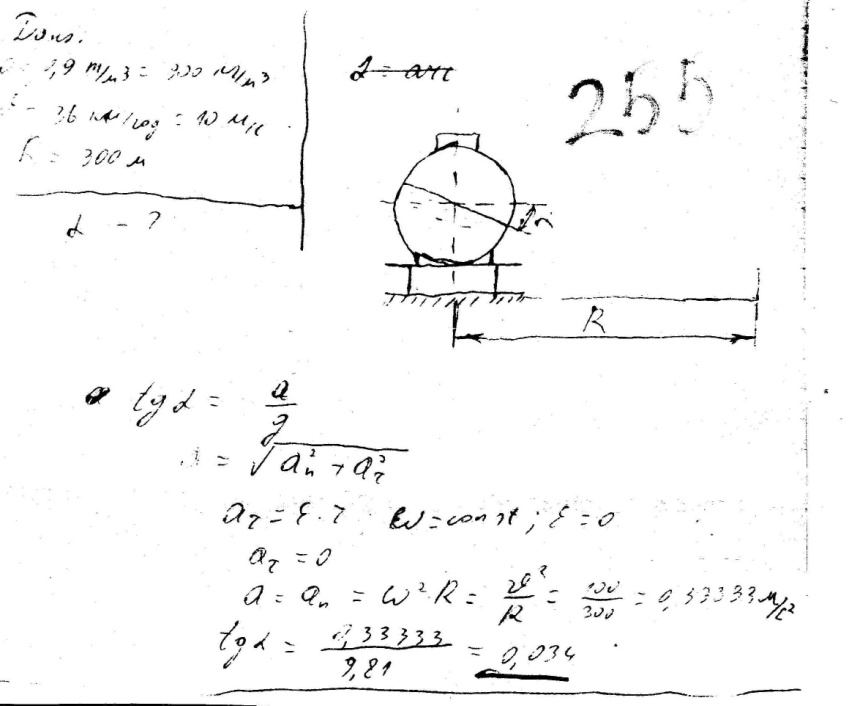 Дано:
0,9 т/м3 = 900 кг/м3
36 км/год = 10 м/с
R = 300 м
α - ?
α = arc
255
α
R
tg α = a/g
a = √(aₙ² + a_τ²)
a_τ = ε · r ω = const; ε = 0
a_τ = 0
a = aₙ = ω² R = v²/R = 100/300 = 0,33333 м/с²
tg α = 0,33333/9,81 = 0,034